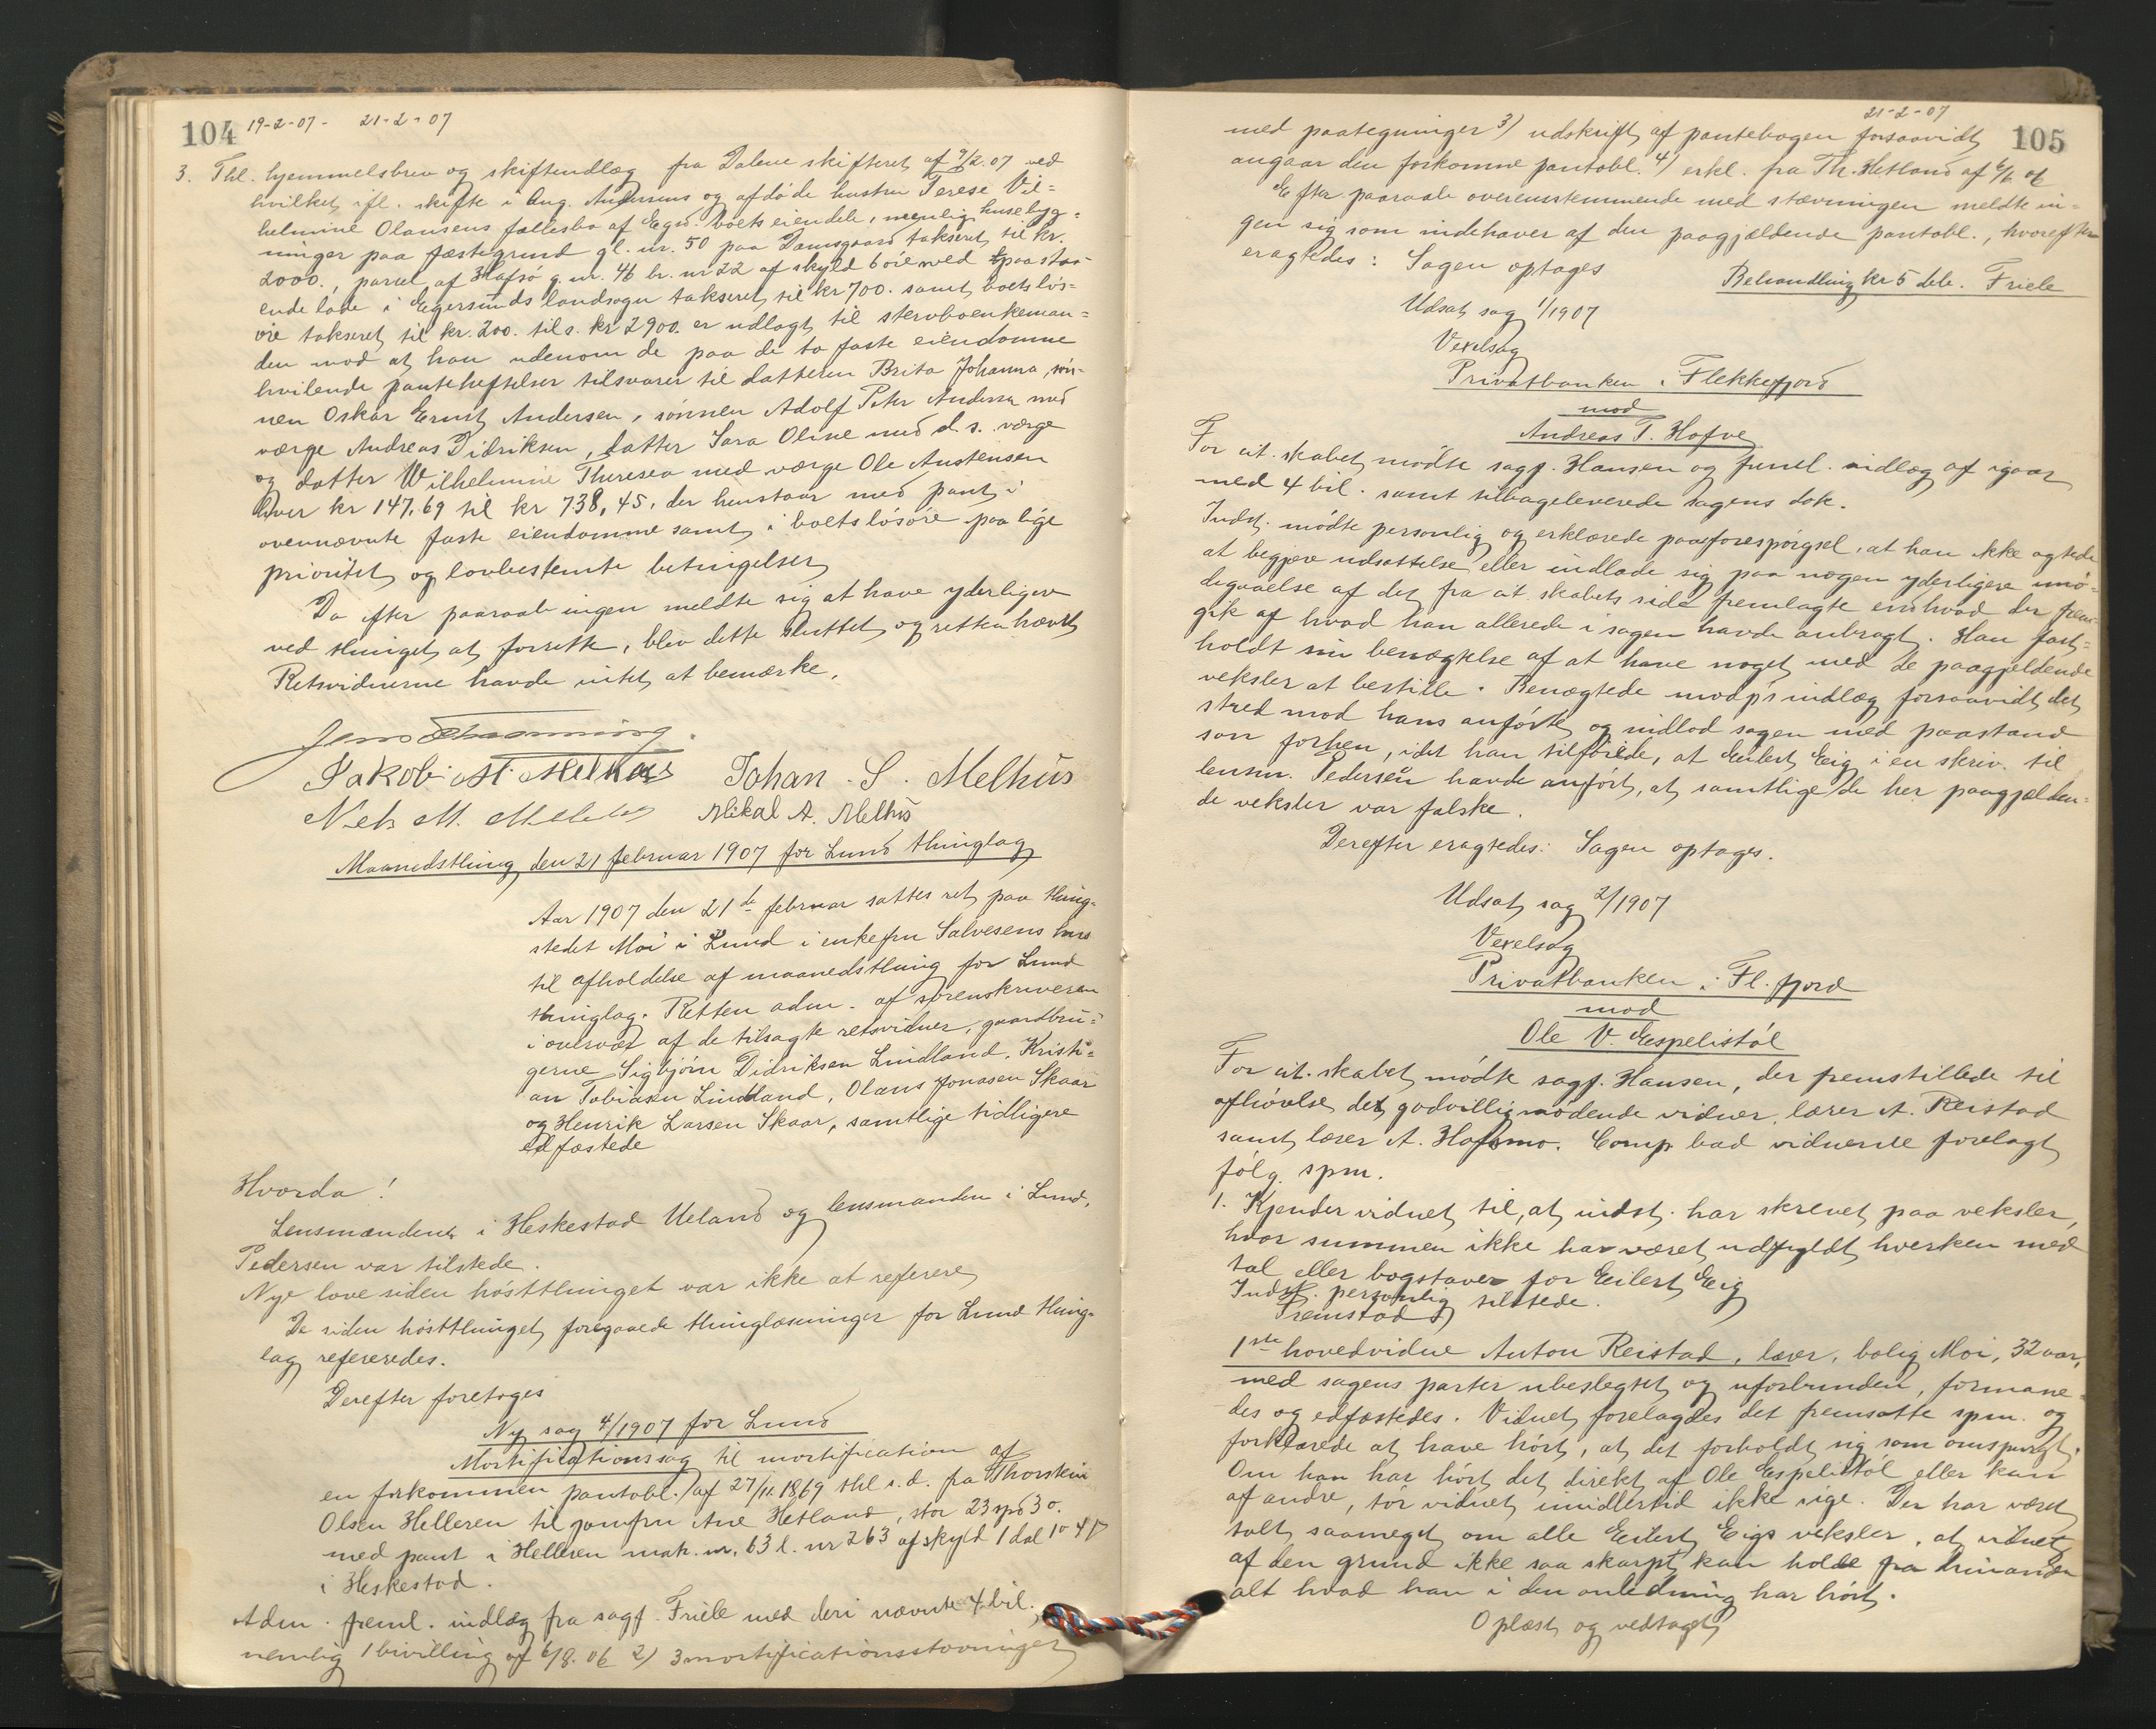 104 19-2-07 - 21-2-07
3. Thl. hjemmelsbrev og skifteudlæg fra Dalene skifteret af 9/2.07 ved
hvilket ifl. skifte i Aug. Andersens og afdøde hustru Terese Vil-
helmine Olausens fællesbo af Egsd. boets eiendele, nemlig husebyg-
ninger paa fæstegrund gl. nr. 50 paa Damsgaard takseret til kr.
2000., parcel af Hafsø g. nr. 46 br. nr 22 af skyld 6 øre med paastaa-
ende lade i Egersunds landsogn takseret til kr 700. samt boets løs-
øre takseret til kr. 200. tils. kr 2900. er udlagt til stervboenkeman-
den mod at han udenom de paa de to faste eiendomme
hvilende panteheftelser tilsvarer til datteren Brita Johanna, søn-
nen Oskar Ernst Andersen, sønnen Adolf Peter Andersen med
værge Andreas Didriksen, datter Sara Oline med d. s. værge
og datter Wilhelmine Theresea med værge Ole Austensen
hver kr 147.69 til kr 738,45, der henstaar med pant i
ovennævnte faste eiendomme samt i boets løsøre paa lige
prioritet og lovbestemte betingelser
Da efter paaraab ingen meldte sig at have yderligere
ved thinget at forrette, blev dette sluttet og retten hævet
Retsvidnerne havde intet at bemærke.
Jens
Jakob M Melhus Johan. S. Melhus
Nels M. Melhus Mikal A. Melhus
Maanedsthing den 21 februar 1907 for Lund thinglag
Aar 1907 den 21de februar sattes ret paa thing-
stedet Moi i Lund i enkefru Salvesens hus
til afholdelse af maanedsthing for Lund
thinglag. Retten adm. af sorenskriveren
i overvær af de tilsagte retsvidner, gaardbru-
gerne Sigbjørn Didriksen Lindland, Kristi-
an Tobiasen Lindland, Olaus Jonasen Skaar
og Henrik Larsen Skaar, samtlige tidligere
edfæstede
Hvorda!
Lensmændene i Heskestad Ueland og lensmanden i Lund,
Pedersen var tilstede.
Nye love siden høstthinget var ikke at referere
De siden høstthinget foregaaede thinglæsninger for Lund thing-
lag refereredes.
Derefter foretoges
Ny sag 4/1907 for Lund
Mortifikationssag til mortification af
en forkommen pantobl. af 27/11.1869 thl s. d. fra Thorstein
Olsen Helleren til jomfru Ane Hetland, stor 23 spd 3 o.
med pant i Helleren mak. nr. 63 l. nr 263 af skyld 1 dal 1o 4 s
i Heskestad.
Adm. freml. indlæg fra sagf. Friele med deri nævnte 4 bil.,
nemlig 1 bevilling af 6/8.06 2) 3 mortificationsstævninger
21-2-07
105
med paategninger 3) udskrift af pantebogen forsaavidt
angaar den forkomne pantobl. 4) erkl. fra Th. Hetland af 6/6 06
Efter paaraab overensstemmende med stævningen meldte in-
gen sig som indehaver af den paagjældende pantobl., hvorefter
eragtedes: Sagen optages
Behandling kr 5 deb. Friele
Udsat sag 1/1907
Vexelsag
Privatbanken i Flekkefjord
mod
Andreas T. Hofve
For cit. skabet mødte sagf. Hansen og freml. indlæg af igaar
med 4 bil. samt tilbageleverede sagens dok.
Indst. mødte personlig og erklærede paa forespørgsel, at han ikke agtede
at begjære udsættelse eller indlade sig paa nogen yderligere imø-
degaaelse af det fra cit. skabets side fremlagte end hvad der frem-
gik af hvad han allerede i sagen havde anbragt. Han fast-
holdt sin benægtelse af at have noget med de paagjældende
veksler at bestille. Benægtede modp's indlæg forsaavidt det
stred mod hans anførte og indlod sagen med paastand
som forhen, idet han tilføiede, at Eilert Eig i en skriv. til
lensm. Pedersen havde anført, at samtlige de her paagjælden-
de veksler var falske.
Derefter eragtedes: Sagen optages.
Udsat sag 2/1907
Vexelsag
Privatbanken i Fl. fjord
mod
Ole V. Espelistøl
For cit. skabet mødte sagf. Hansen, der fremstillede til
afhørelse det godvillig mødende vidner, lærer A. Reistad
samt lærer A. Hafsmo. Comp. bad vidnerne forelagt
følg. spm.
1. Kjender vidnet til, at indst. har skrevet paa veksler,
hvor summen ikke har været udfyldt hverken med
tal eller bogstaver for Eilert Eig
Indst. personlig tilstede.
Fremstod
1ste hovedvidne Anton Reistad, lærer, bolig Moi, 32 aar,
med sagens parter ubeslegtet og uforbunden, formane-
des og edfæstedes. Vidnet forelagdes det fremsatte spm. og
forklarede at have hørt, at det forholdt sig som omspurgt.
Om han har hørt det direkt af Ole Espelistøl eller kun
af andre, tør vidnet imidlertid ikke sige. Der har været
talt saameget om alle Eilert Eigs veksler, at vidnet
af den grund ikke saa skarpt kan holde fra hinanden
alt hvad han i den anledning har hørt.
Oplæst og vedtaget